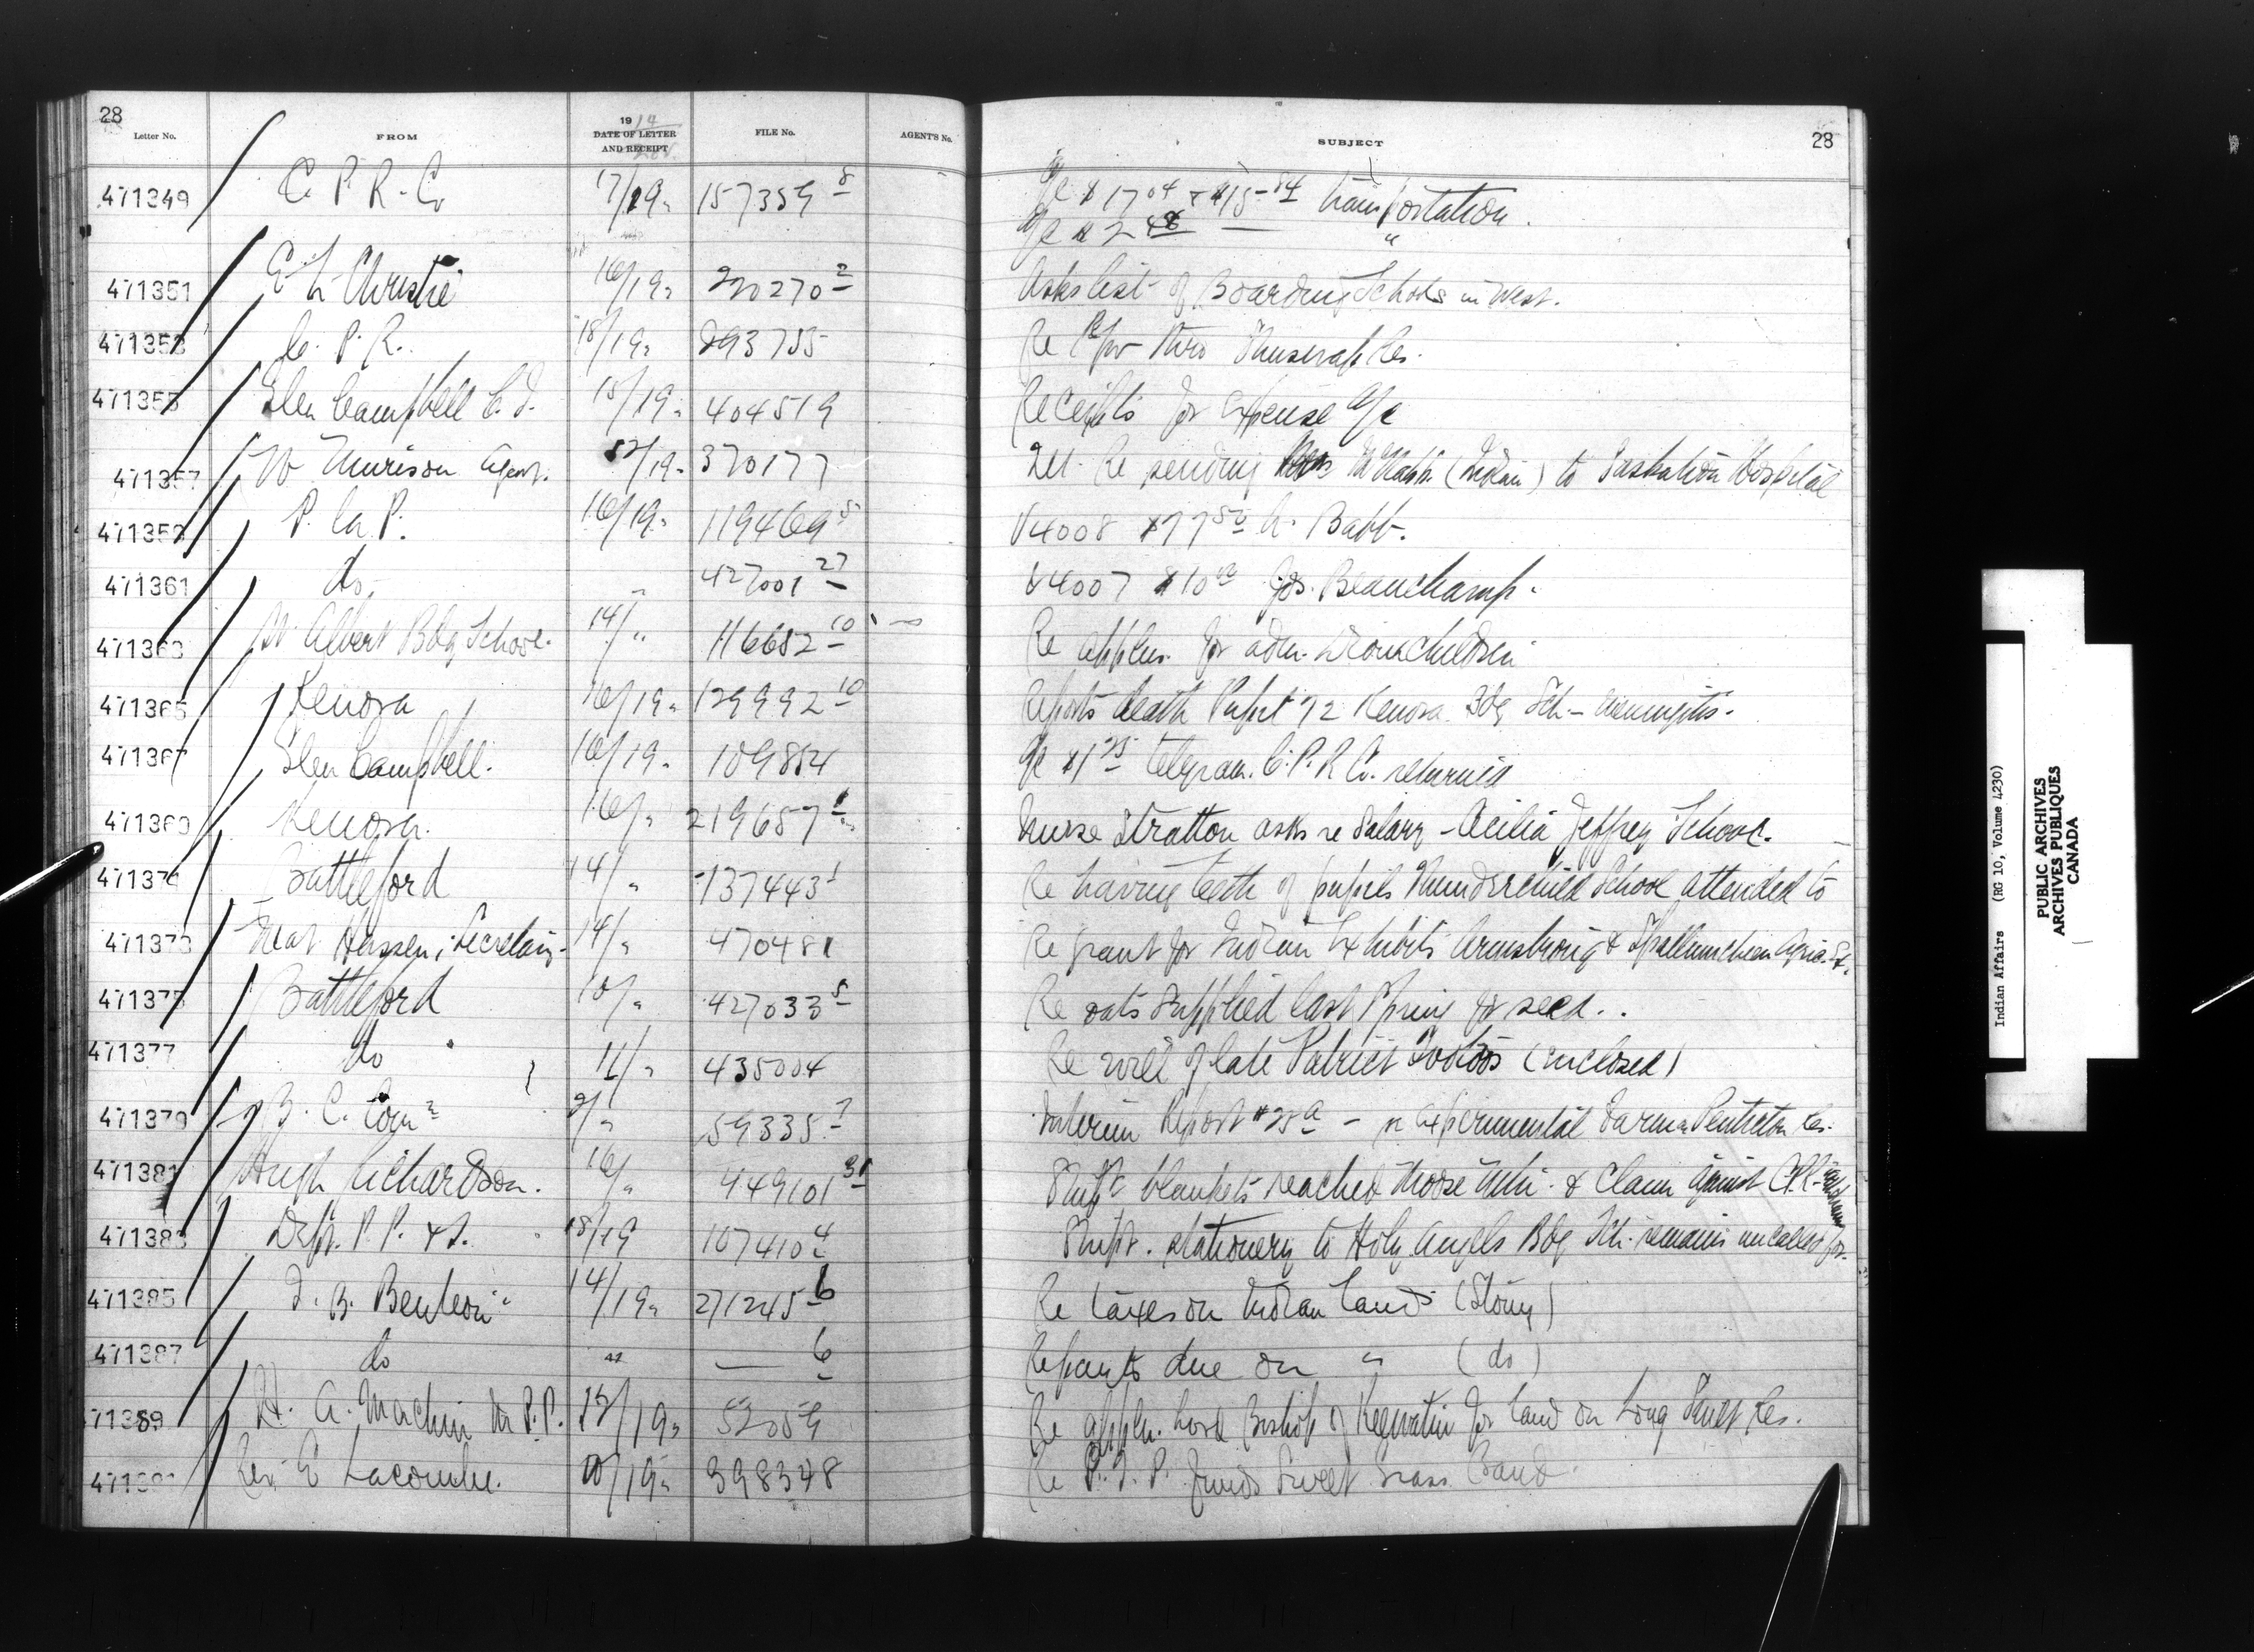 28
Letter No. FROM 19 14 DATE OF LETTER AND RECEIPT FILE No. AGENT'S No. SUBJECT 28
471349 C. P. R. Co 17/19 157359 8 a/c $17 04 & $15 84 transportation.
a/c $2 48 "
471351 Christie 16/19 220270 2 Asks list of Boarding Schools in West.
471353 C. P. R. 18/19 293755 Re thro Res.
471355 Glen Campbell C. I. 15/19 404519 Receipts for expense a/c
471357 W Murison Agent. /19 370177 Re sending (Indian) to Saskatoon Hospital
471359 P. La P. 16/19 119469 5 V4008 $77 50 Babb.
471361 do. " 427001 27 V4007 $10 Jos. Beauchamp.
471363 St. Albert Bdg School. 14/" 116682 10 Re applcn. for adm. children
471365 Kenora 16/19 129992 10 Reports death Pupil 72 Kenora Bdg Sch - meningitis.
471367 Glen Campbell. 16/19 109884 a/c $1 25 telegram. C. P. R Co. returned
471369 Kenora. 16/" 219657 1 Nurse Stratton asks re Salary - Cecilia Jeffrey School.
471371 Battleford 14/" 137443 1 Re having teeth of pupils Thunderchild School attended to
471373 Mat Hassen, Secretary. 14/" 470481 Re grant for Indian Exhibits Armstrong & Spallumcheen Agric. S.
471375 Battleford 10/" 427033 5 Re oats supplied last Spring for seed.
471377 do 11/" 435004 Re will of late Patrick (enclosed)
471379 B. C. Comn 9/" 59335 7 Interim Report #25 a - re experimental Farm Penticton Res.
471381 Hugh Richardson. 16/" 449101 31 Shipt blankets reached Moose & Claim against C.P.R.
471383 Dept. P. P. & S. 18/19 107410 4 Shipt. stationery to Holy Angels Bdg Sch. remains uncalled for.
471385 14/19 271245 6 Re taxes on Indian land (Stony)
471387 do " — 6 Repants due on " (do)
471389 H. A. Machin M. P. P. 13/19 52059 Re applcn. Lord Bishop of Keewatin for land on Long Sault Res.
Rev. E Lacombe. 10/19 398348 Re funds Sweet Grass Band.
Indian Affairs (RG 10, Volume 4230)
PUBLIC ARCHIVES
ARCHIVES PUBLIQUES
CANADA